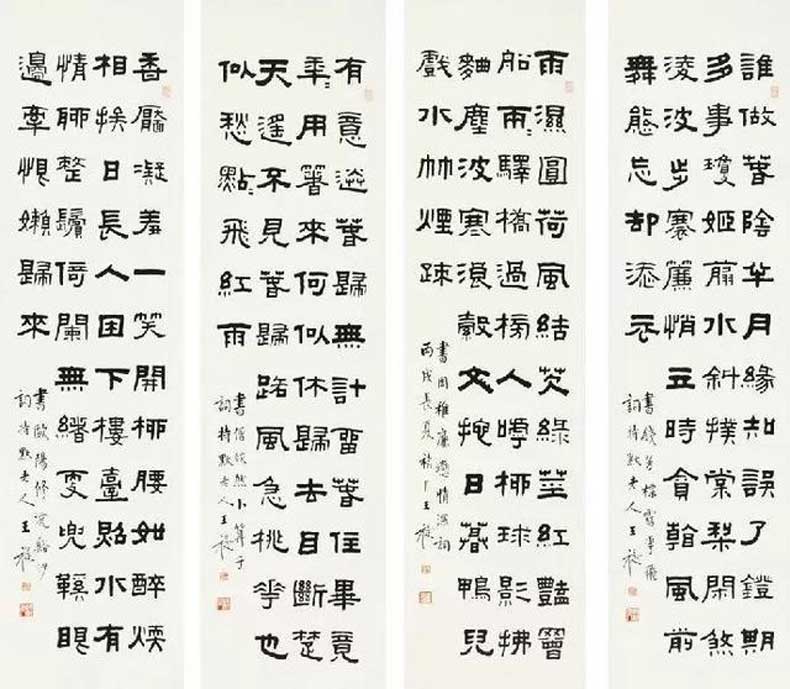 誰做春陰月緣知誤了鐙期
多事瓊姬翦水斜撲棠梨閑煞
淩波步褰簾悄立時貪翰風前
舞態忘却添衣
書錢芳標
詞持默老人王禔
雨濕圓荷風結芡綠莖紅豔罾
船兩〻驛橋過榜人嘑柳球影拂
麯塵波寒浪縠文掩日暮鴨兒
戲水竹煙疎
書周稚廉戀情深詞
丙戌長夏福厂王禔
有意送春歸無計留春住畢竟
年〻用著來何似休歸去目斷楚
天遙不見春歸路風急桃花也
似愁點〻飛紅雨
書僧皎然卜算子
詞持默老人王禔
香靨凝羞一笑開柳腰如醉煖
相挨日長人困下樓臺照水有
情聊整鬢倚闌無緒更兜鞵眼
邊牽恨嬾歸來
書歐陽修浣谿沙
詞持默老人王禔